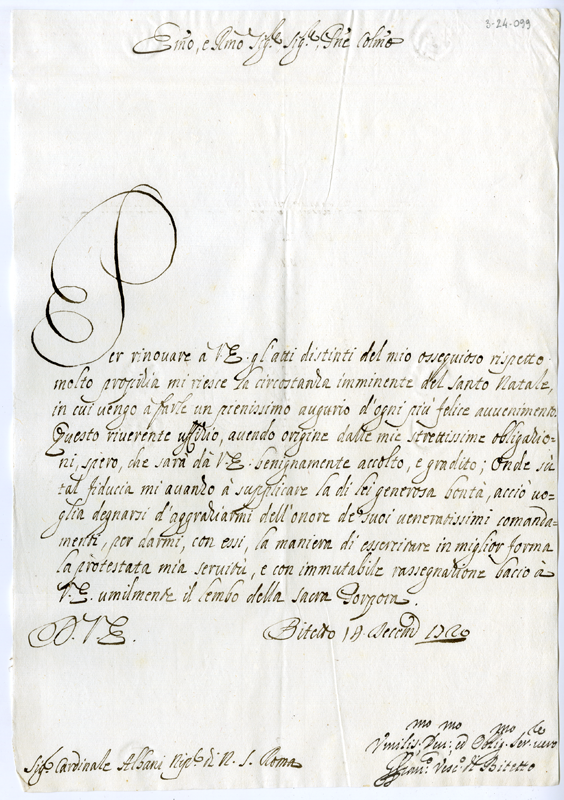 3-24-099
Emo, e Rmo Sigr. Sigr. Pne Colmo
Per rinovare à V.E. gl'atti distinti del mio ossequioso rispetto
molto propizia mi riesce la circostanza imminente del Santo Natale,
in cui vengo à farle un pienissimo augurio d'ogni più felice avvenimento.
Questo riverente uffizio, avendo origine dalle mie strettissime obligazio=
ni, spero, che sarà dà V.E. benignamente accolto, e gradito; Onde sù
tal fiducia mi avanzo à supplicare la di lei generosa bontà, acciò vo=
glia degnarsi d'aggraziarmi dell'onore de suoi veneratissimi comanda=
menti, per darmi, con essi, la maniera di essercitare in miglior forma
la protestata mia servitù, e con immutabile rassegnazione bacio à
V.E. umilmente il lembo della Sacra Porpora.
D. V.E.
Bitetto 14 Decem
Umilis. Div. ed Oblig. Ser. vero
Vesc. di Bitetto
Sigr. Cardinale Albani di N. S. Roma